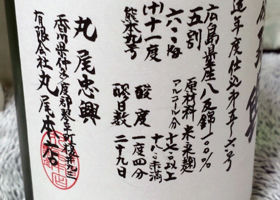 造年度仕込第五六号
広島県産八反錦100%
五割
原材料 米 米麹
六〇%
アルコール分
十七.〇以上
十八.〇未満
(+)十一度
酸度
一度四分
熊本九号
醪日数
二十九日
丸尾忠興
香川県仲多度郡琴平町榎井九三
有限会社 丸尾本店